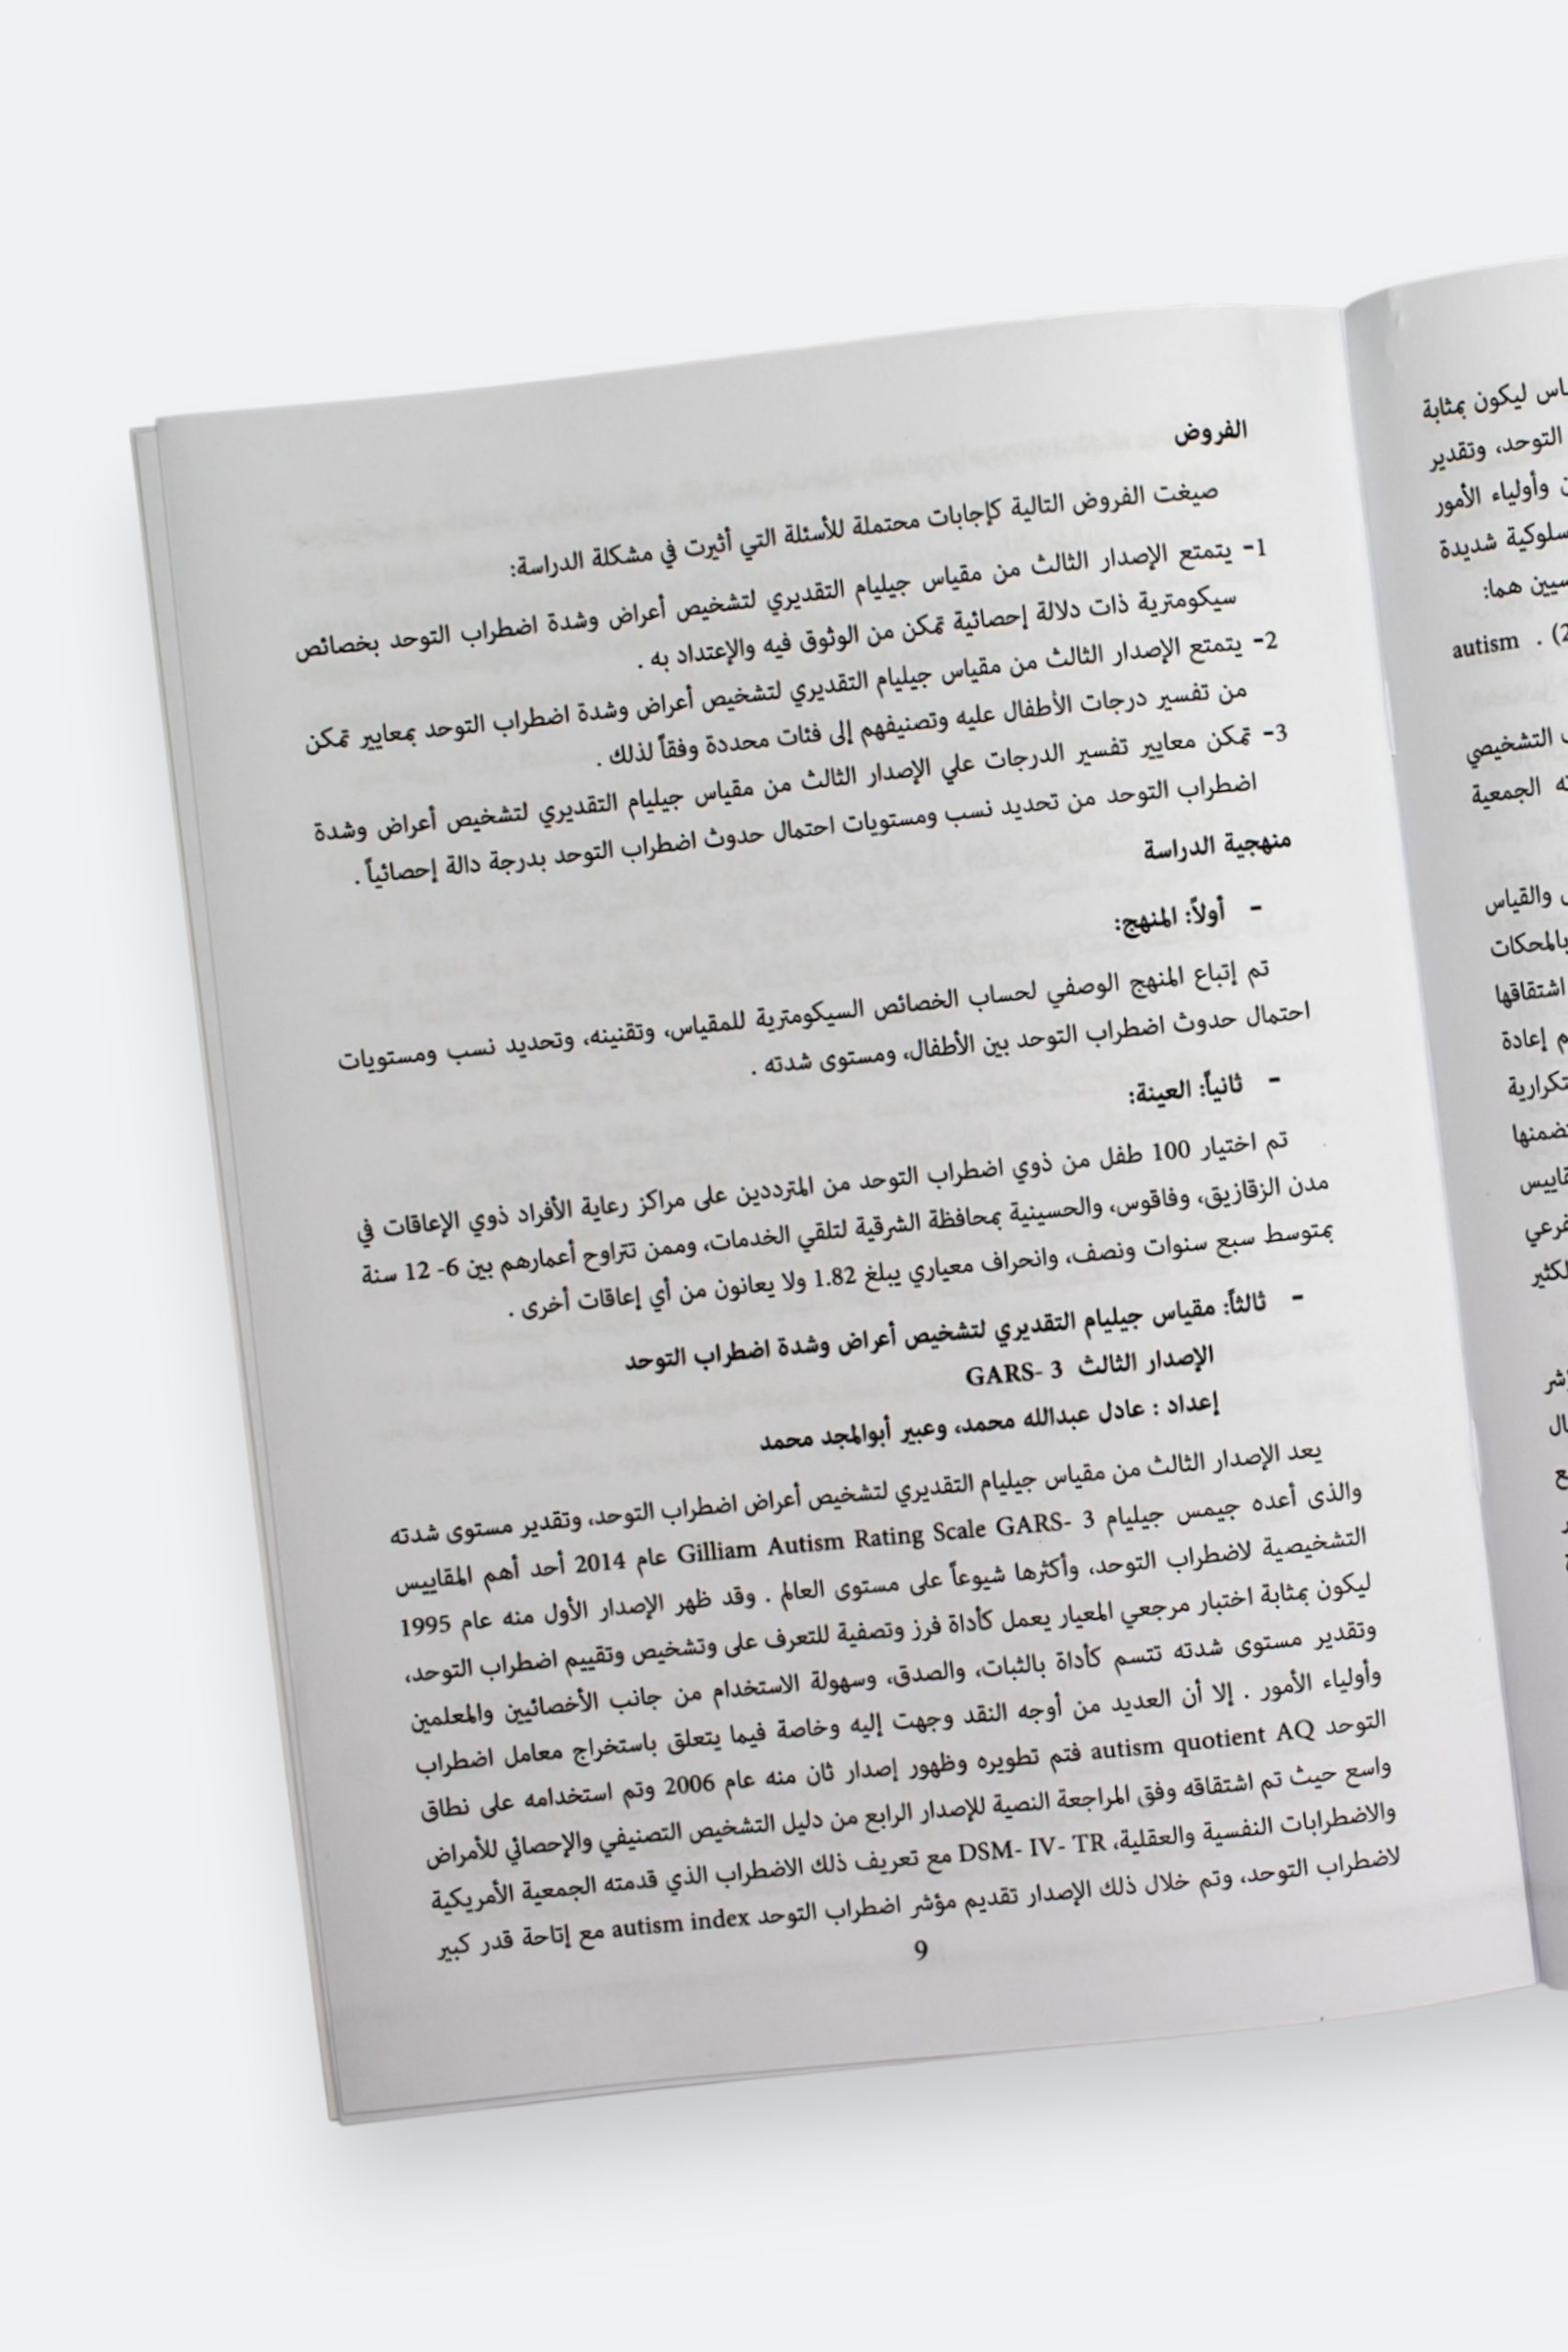 الفروض
صيغت الفروض التالية كإجابات محتملة للأسئلة التي أثيرت في مشكلة الدراسة:
1- يتمتع الإصدار الثالث من مقياس جيليام التقديري لتشخيص أعراض وشدة اضطراب التوحد بخصائص
سيكومترية ذات دلالة إحصائية تمكن من الوثوق فيه والإعتداد به .
2- يتمتع الإصدار الثالث من مقياس جيليام التقديري لتشخيص أعراض وشدة اضطراب التوحد بمعايير تمكن
من تفسير درجات الأطفال عليه وتصنيفهم إلى فئات محددة وفقاً لذلك .
3- تمكن معايير تفسير الدرجات علي الإصدار الثالث من مقياس جيليام التقديري لتشخيص أعراض وشدة
اضطراب التوحد من تحديد نسب ومستويات احتمال حدوث اضطراب التوحد بدرجة دالة إحصائياً .
منهجية الدراسة
- أولاً: المنهج:
تم إتباع المنهج الوصفي لحساب الخصائص السيكومترية للمقياس، وتقنينه، وتحديد نسب ومستويات
احتمال حدوث اضطراب التوحد بين الأطفال، ومستوى شدته .
- ثانياً: العينة:
تم اختيار 100 طفل من ذوي اضطراب التوحد من المترددين على مراكز رعاية الأفراد ذوي الإعاقات في
مدن الزقازيق، وفاقوس، والحسينية بمحافظة الشرقية لتلقي الخدمات، وممن تتراوح أعمارهم بين 6- 12 سنة
بمتوسط سبع سنوات ونصف، وانحراف معياري يبلغ 1.82 ولا يعانون من أي إعاقات أخرى .
- ثالثاً: مقياس جيليام التقديري لتشخيص أعراض وشدة اضطراب التوحد
الإصدار الثالث GARS- 3
إعداد : عادل عبدالله محمد، وعبير أبوالمجد محمد
يعد الإصدار الثالث من مقياس جيليام التقديري لتشخيص أعراض اضطراب التوحد، وتقدير مستوى شدته
والذى أعده جيمس جيليام Gilliam Autism Rating Scale GARS- 3 عام 2014 أحد أهم المقاييس
التشخيصية لاضطراب التوحد، وأكثرها شيوعاً على مستوى العالم . وقد ظهر الإصدار الأول منه عام 1995
ليكون بمثابة اختبار مرجعي المعيار يعمل كأداة فرز وتصفية للتعرف على وتشخيص وتقييم اضطراب التوحد،
وتقدير مستوى شدته تتسم كأداة بالثبات، والصدق، وسهولة الاستخدام من جانب الأخصائيين والمعلمين
وأولياء الأمور . إلا أن العديد من أوجه النقد وجهت إليه وخاصة فيما يتعلق باستخراج معامل اضطراب
التوحد autism quotient AQ فتم تطويره وظهور إصدار ثان منه عام 2006 وتم استخدامه على نطاق
واسع حيث تم اشتقاقه وفق المراجعة النصية للإصدار الرابع من دليل التشخيص التصنيفي والإحصائي للأمراض
والاضطرابات النفسية والعقلية، DSM- IV- TR مع تعريف ذلك الاضطراب الذي قدمته الجمعية الأمريكية
لاضطراب التوحد، وتم خلال ذلك الإصدار تقديم مؤشر اضطراب التوحد autism index مع إتاحة قدر كبير
9
ليكون بمثابة
التوحد، وتقدير
وأولياء الأمور
سلوكية شديدة
هما:
autism . (2
التشخيصي
الجمعية
والقياس
بالمحكات
اشتقاقها
إعادة